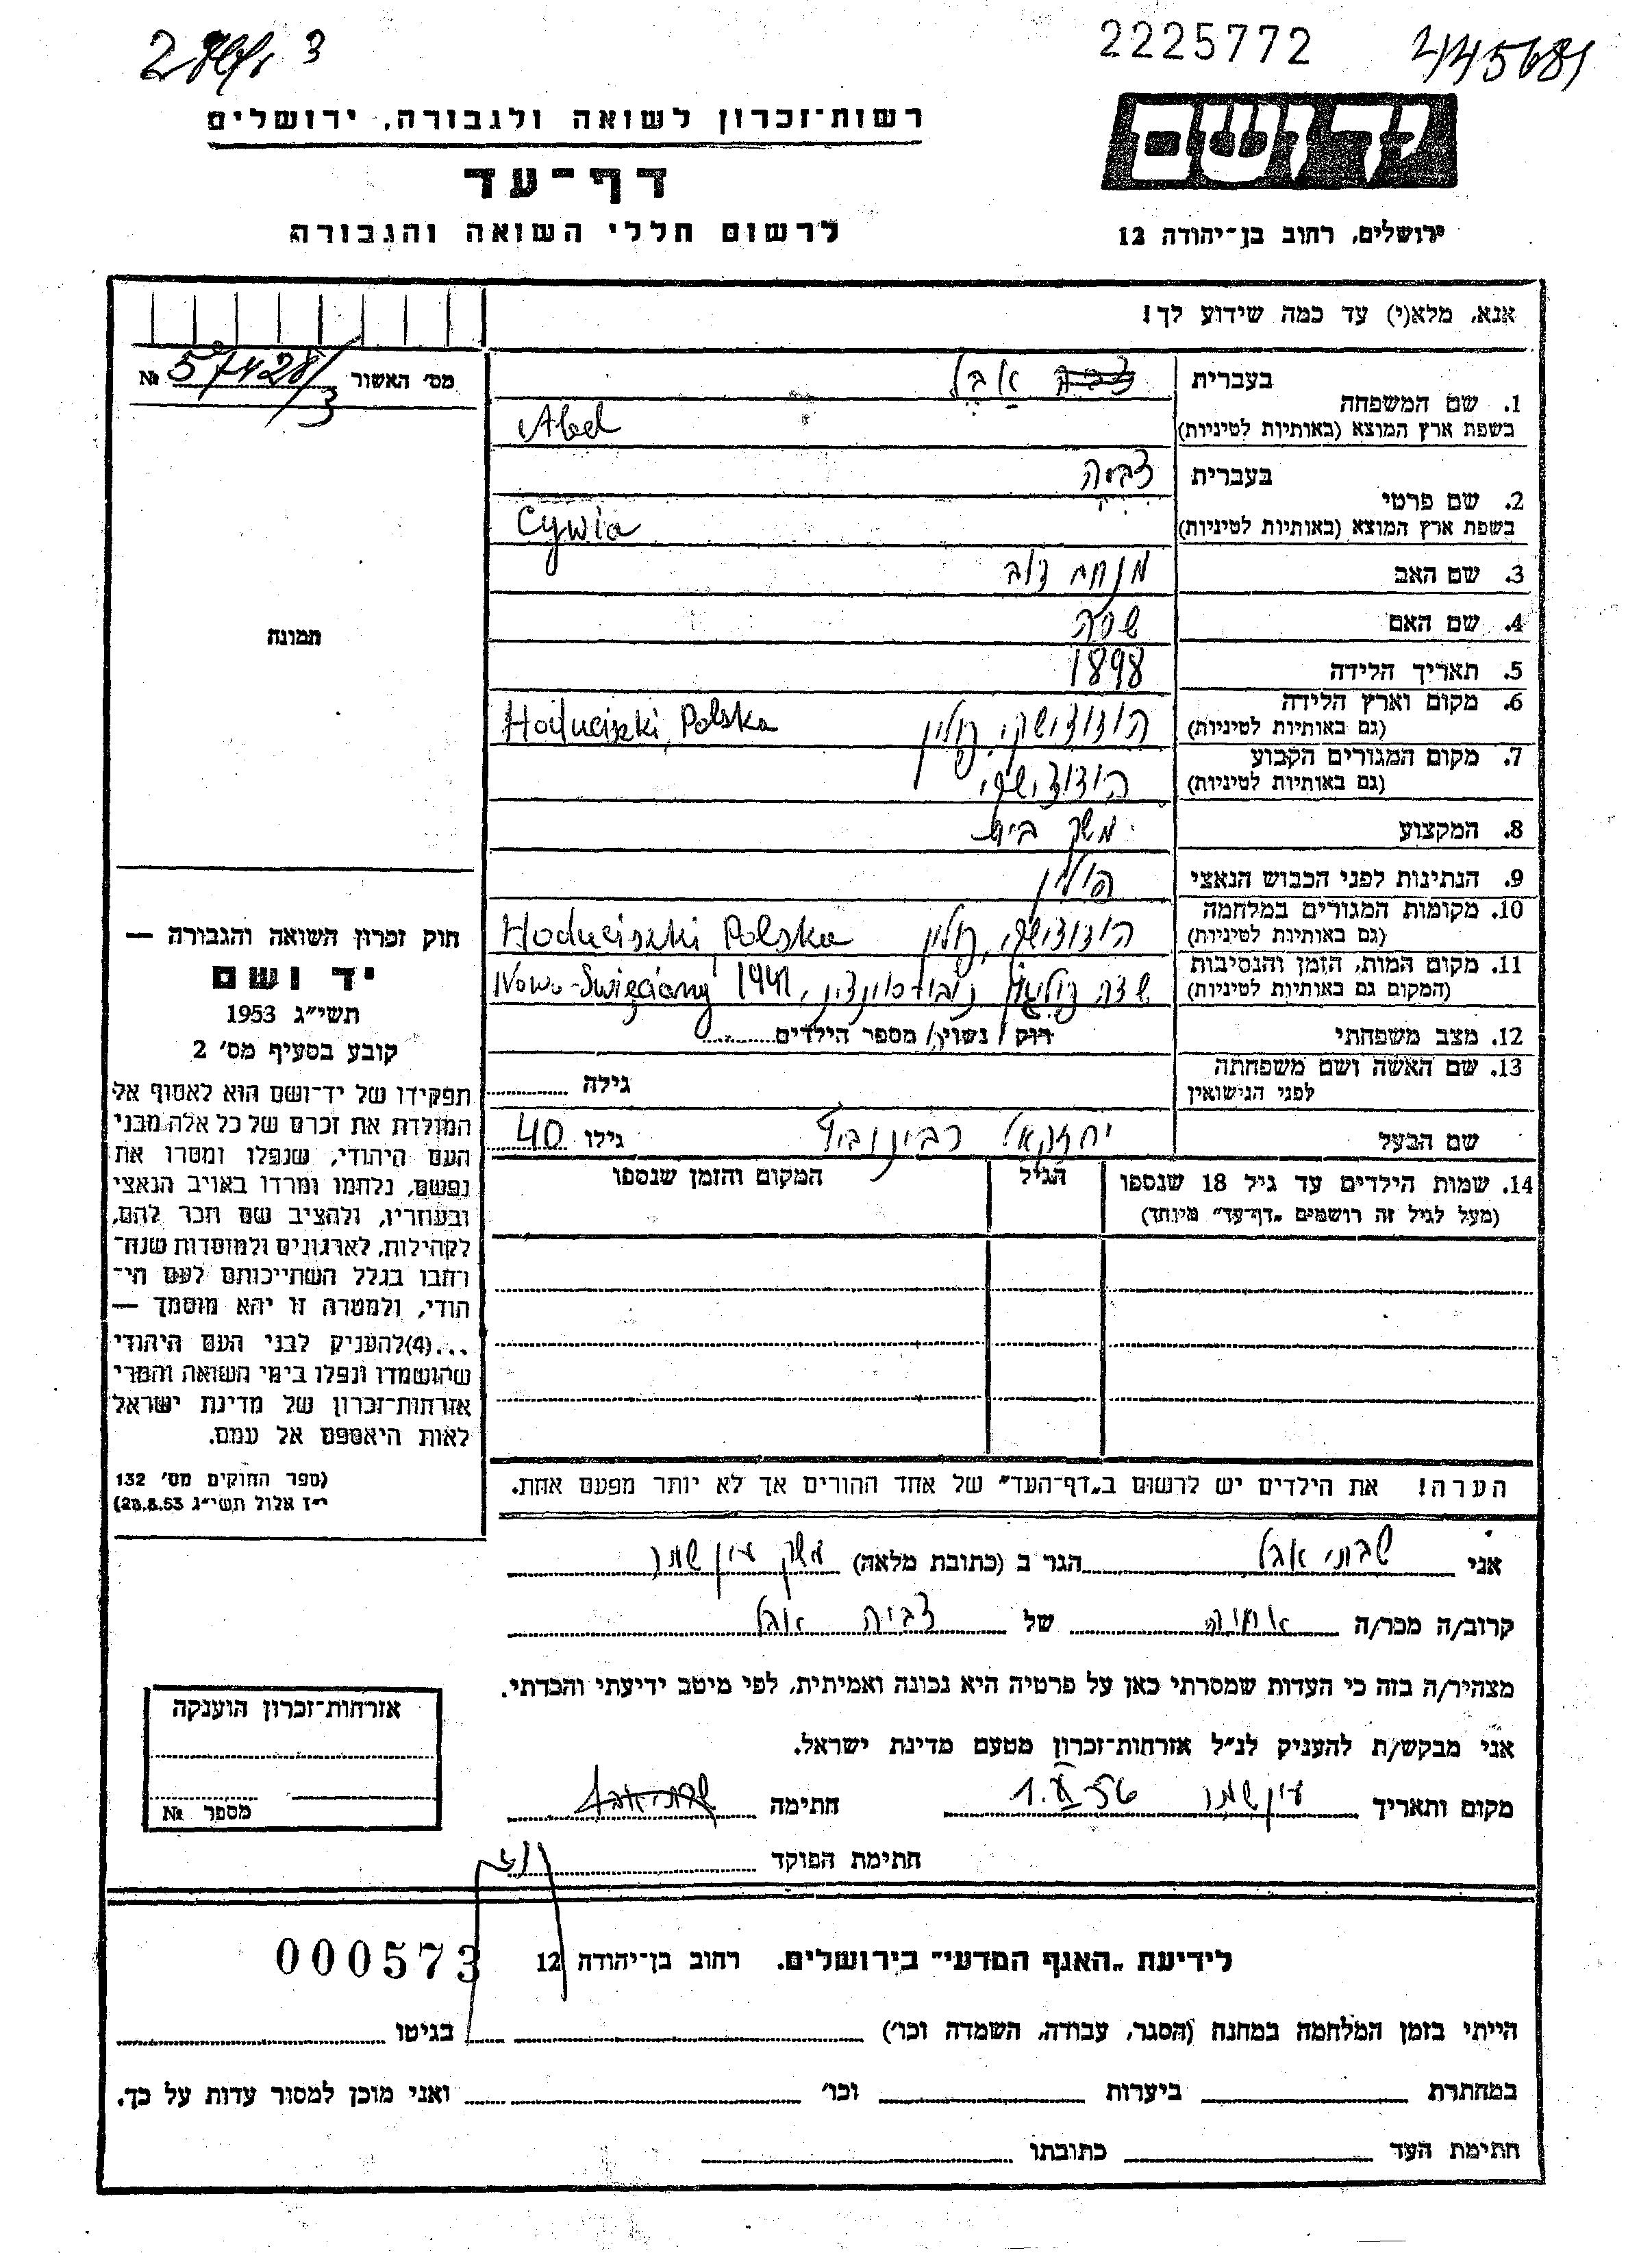 3
2225772
445681
רשות־זכרון לשואה ולגבורה, ירושלים
יד ושם
דף־עד
לרשום חללי השואה והגבורה
ירושלים, רחוב בן־יהודה 12
אנא, מלא(י) עד כמה שידוע לך!
מס' האשור № 57428/3
1. שם המשפחה
בעברית אבל
בשפת ארץ המוצא (באותיות לטיניות) Abel
2. שם פרטי
בעברית צביה
בשפת ארץ המוצא (באותיות לטיניות) Cywia
3. שם האב מנחם
4. שם האם שרה
5. תאריך הלידה 1898
6. מקום וארץ הלידה (גם באותיות לטיניות) הודוצישקי, פולין Hoduciszki, Polska
7. מקום המגורים הקבוע (גם באותיות לטיניות) הודוצישקי
8. המקצוע משק בית
9. הנתינות לפני הכבוש הנאצי פולין
10. מקומות המגורים במלחמה (גם באותיות לטיניות) הודוצישקי, פולין Hoduciszki, Polska
11. מקום המות, הזמן והנסיבות (המקום גם באותיות לטיניות) שדה פוליגון 1941, Nowo-Święciany
12. מצב משפחתי רוק / נשוי / מספר הילדים
13. שם האשה ושם משפחתה לפני הנישואין גילה
שם הבעל יחזקאל רבינוביץ גילו 40
14. שמות הילדים עד גיל 18 שנספו
(מעל לגיל זה רושמים „דף־עד" מיוחד)
הגיל
המקום והזמן שנספו
הערה! את הילדים יש לרשום ב„דף־העד" של אחד ההורים אך לא יותר מפעם אחת.
תמונה
חוק זכרון השואה והגבורה —
יד ושם
תשי"ג 1953
קובע בסעיף מס' 2
תפקידו של יד־ושם הוא לאסוף אל
המולדת את זכרם של כל אלה מבני
העם היהודי, שנפלו ומסרו את
נפשם, נלחמו ומרדו באויב הנאצי
ובעוזריו, ולהציב שם וזכר להם,
לקהילות, לארגונים ולמוסדות שנח־
רבו בגלל השתייכותם לעם הי־
הודי, ולמטרה זו יהא מוסמך —
...(4)להעניק לבני העם היהודי
שהושמדו ונפלו בימי השואה והמרי
אזרחות־זכרון של מדינת ישראל
לאות היאספם אל עמם.
(ספר החוקים מס' 132
י"ז אלול תשי"ג 28.8.53)
אני שבתי אבל הגר ב (כתובת מלאה) משק עין שמר
קרוב/ה מכר/ה אחיה של צביה אבל
מצהיר/ה בזה כי העדות שמסרתי כאן על פרטיה היא נכונה ואמיתית, לפי מיטב ידיעתי והכרתי.
אני מבקש/ת להעניק לנ"ל אזרחות־זכרון מטעם מדינת ישראל.
מקום ותאריך עין שמר 1.X.56 חתימה שבתי אבל
חתימת הפוקד
אזרחות־זכרון הוענקה
מספר №
לידיעת „האגף המדעי" בירושלים. רחוב בן־יהודה 12
000573
הייתי בזמן המלחמה במחנה (הסגר, עבודה, השמדה וכו') בגיטו
במחתרת ביערות וכו' ואני מוכן למסור עדות על כך.
חתימת העד כתובתו